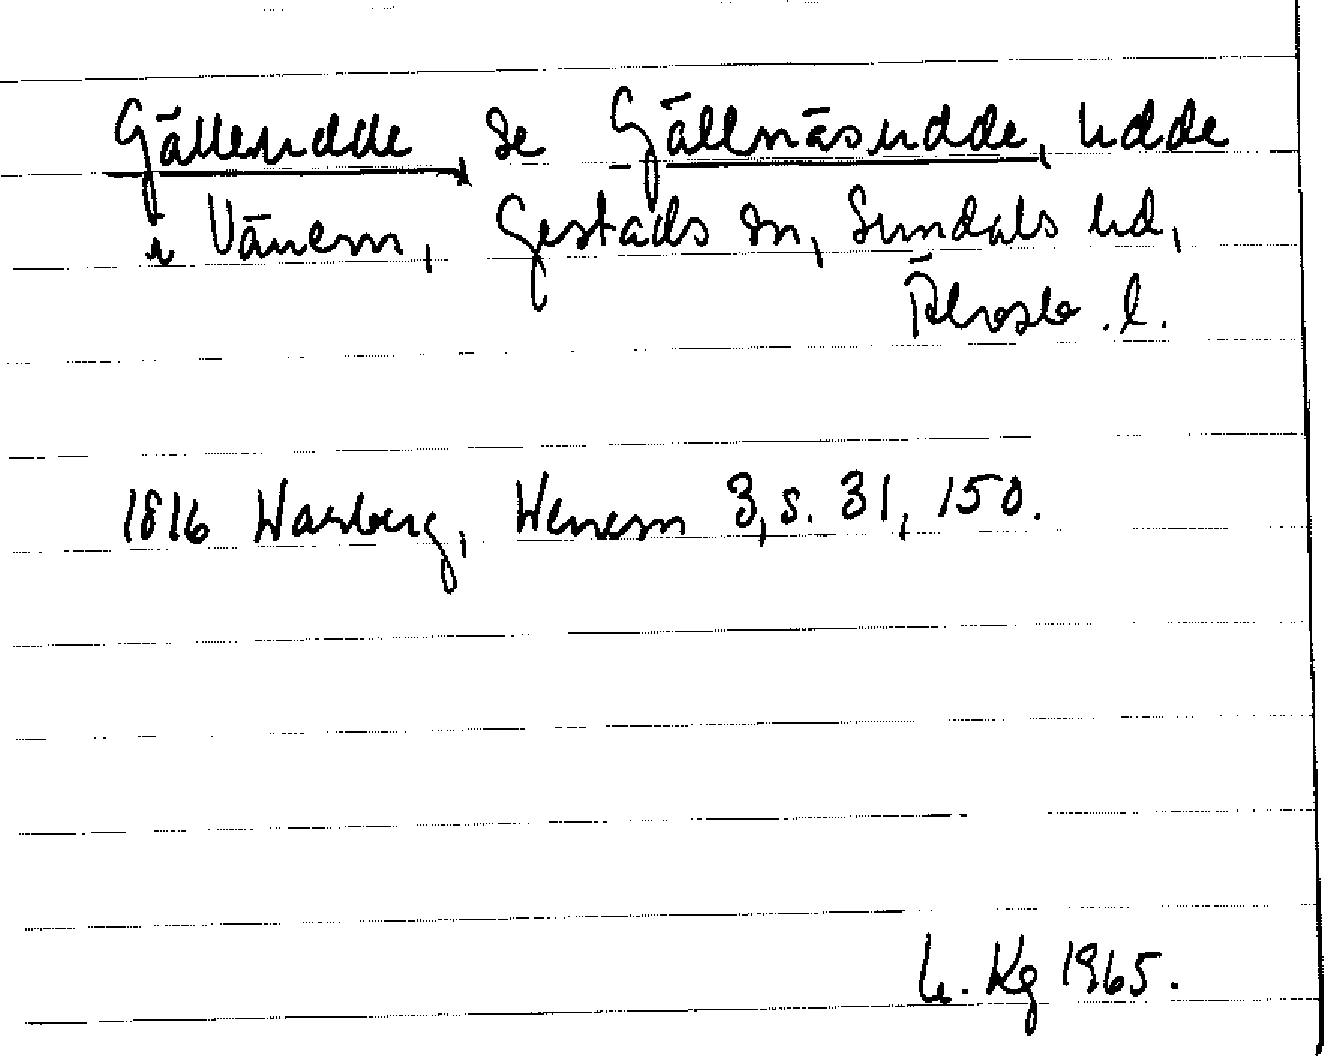 Gälleudde, se Gällnäsudde, udde
i Vänern, Gestads sn, Sundals hd,
Älvsb. l.
1816 Warberg, Wenern 3, s. 31, 150.
Kg 1965.